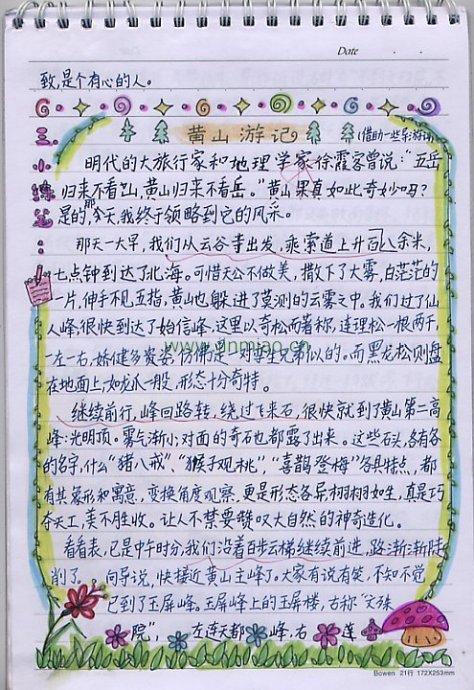 Date
致,是个有心的人。
黄山游记(借助一些导游词)
三、小练笔:
明代的大旅行家和地理学家徐霞客曾说:“五岳
归来不看山,黄山归来不看岳。”黄山果真如此奇妙吗?
是的,那今天,我终于领略到它的风采。
那天一大早,我们从云谷寺出发,乘索道上升百八余米,
七点钟到达了北海。可惜天公不做美,撒下了大雾,白茫茫的
一片,伸手不见五指,黄山也躲进了莫测的云雾之中。我们过了仙
人峰,很快到达了始信峰。这里以奇松而著称,连理松一根两干,
一左一右,娇健多姿,仿佛是一对孪生兄弟似的。而黑龙松则盘
在地面上,如龙爪一般,形态十分奇特。
继续前行,峰回路转,绕过飞来石,很快就到了黄山第二高
峰:光明顶。雾气渐小,对面的奇石也都露了出来。这些石头,各有各
的名字,什么“猪八戒”、“猴子观桃”,“喜鹊登梅”各具特点,都
有其象形和寓意,变换角度观察,更是形态各异栩栩如生,真是巧
夺天工,美不胜收。让人不禁要慨叹大自然的神奇造化。
看看表,已是中午时分,我们沿着百步云梯继续前进,路渐渐陡
削了。向导说,快接近黄山主峰了。大家有说有笑,不知不觉
已到了玉屏峰。玉屏峰上的玉屏楼,古称“文殊
院”,左连天都峰,右莲
Bowen 21行 172X253mm